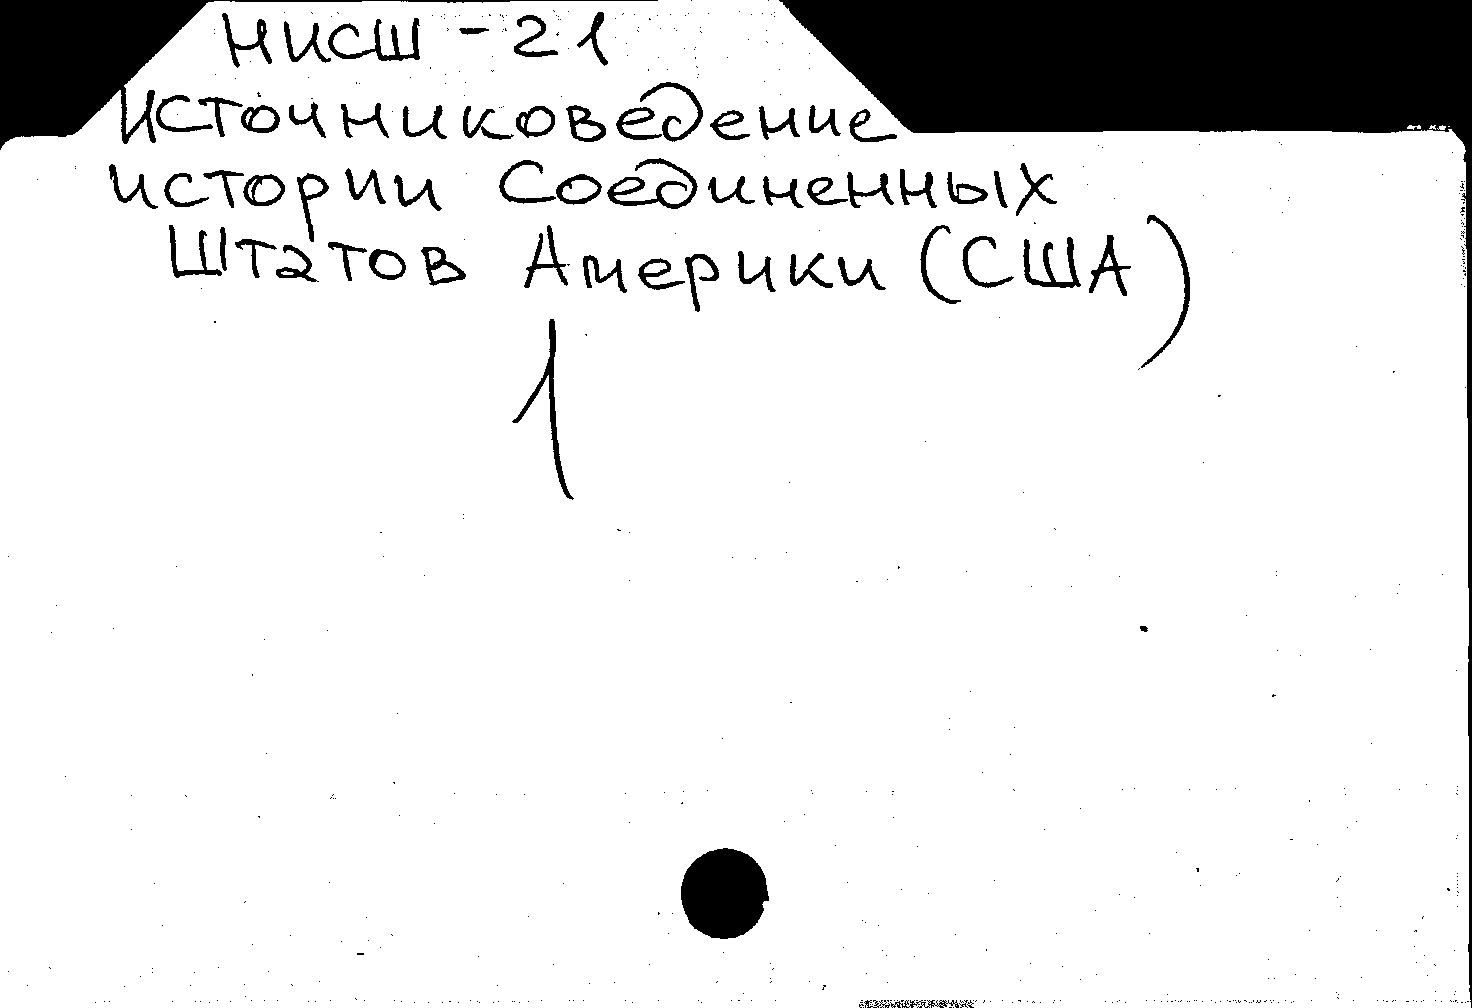 НИСШ - 21
Источниковедение
истории Соединенных
Штатов Америки (США)
1